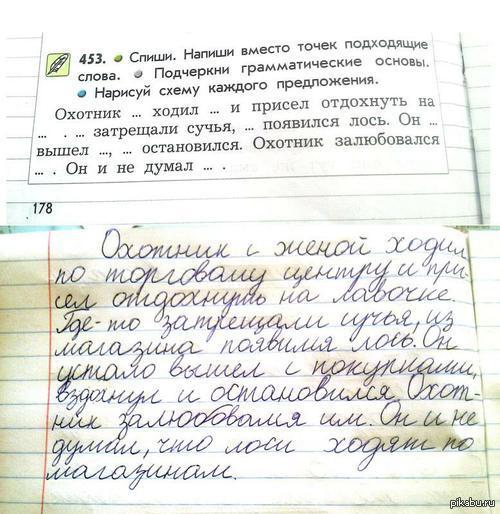 453. Спиши. Напиши вместо точек подходящие
слова. Подчеркни грамматические основы.
Нарисуй схему каждого предложения.
Охотник ... ходил ... и присел отдохнуть на
... . ... затрещали сучья, ... появился лось. Он ...
вышел ..., ... остановился. Охотник залюбовался
... . Он и не думал ... .
178
Охотник с женой ходил
по торговому центру и при-
сел отдохнуть на лавочке.
Где-то затрещали сучья, из
магазина появился лось. Он
устало вышел с покупками,
вздохнул и остановился. Охот-
ник залюбовался им. Он и не
думал, что лоси ходят по
магазинам.
pikabu.ru